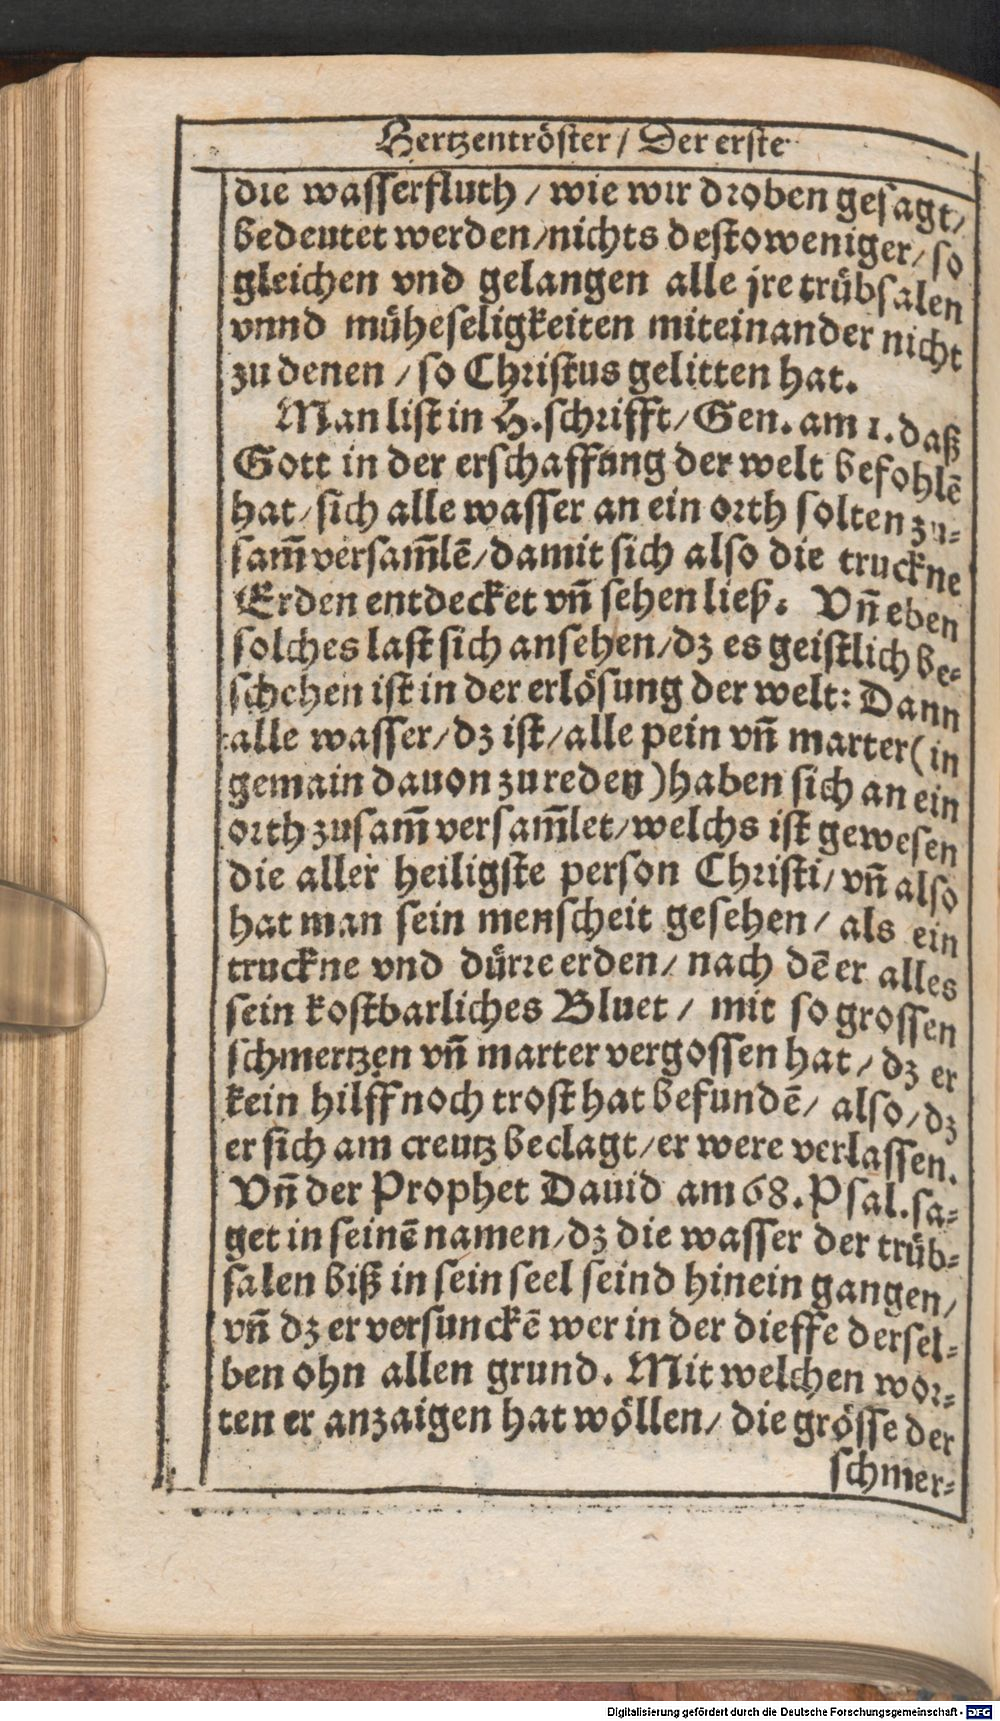 Hertzentröster / Der erste
die wasserfluth / wie wir droben gesagt /
bedeutet werden / nichts destoweniger / so
gleichen vnd gelangen alle jre trübsalen
vnnd müheseligkeiten miteinander nicht
zu denen / so Christus gelitten hat.
Man list in H. schrifft / Gen. am 1. daß
Gott in der erschaffung der welt befohlē
hat / sich alle wasser an ein orth solten zu-
sam̄ versam̄lē / damit sich also die truckne
Erden entdecket vn̄ sehen ließ. Vn̄ eben
solches last sich ansehen / dz es geistlich be-
schehen ist in der erlösung der welt: Dann
alle wasser / dz ist / alle pein vn̄ marter (in
gemain dauon zu reden) haben sich an ein
orth zusam̄ versam̄let / welchs ist gewesen
die aller heiligste person Christi / vn̄ also
hat man sein menscheit gesehen / als ein
truckne vnd dürre erden / nach dē er alles
sein kostbarliches Bluet / mit so grossen
schmertzen vn̄ marter vergossen hat / dz er
kein hilff noch trost hat befundē / also / dz
er sich am creutz beclagt / er were verlassen.
Vn̄ der Prophet Dauid am 68. Psal. sa-
get in seinē namen / dz die wasser der trüb-
salen biß in sein seel seind hinein gangen /
vn̄ dz er versunckē wer in der dieffe dersel-
ben ohn allen grund. Mit welchen wor-
ten er anzaigen hat wöllen / die grösse der
schmer-
Digitalisierung gefördert durch die Deutsche Forschungsgemeinschaft - DFG